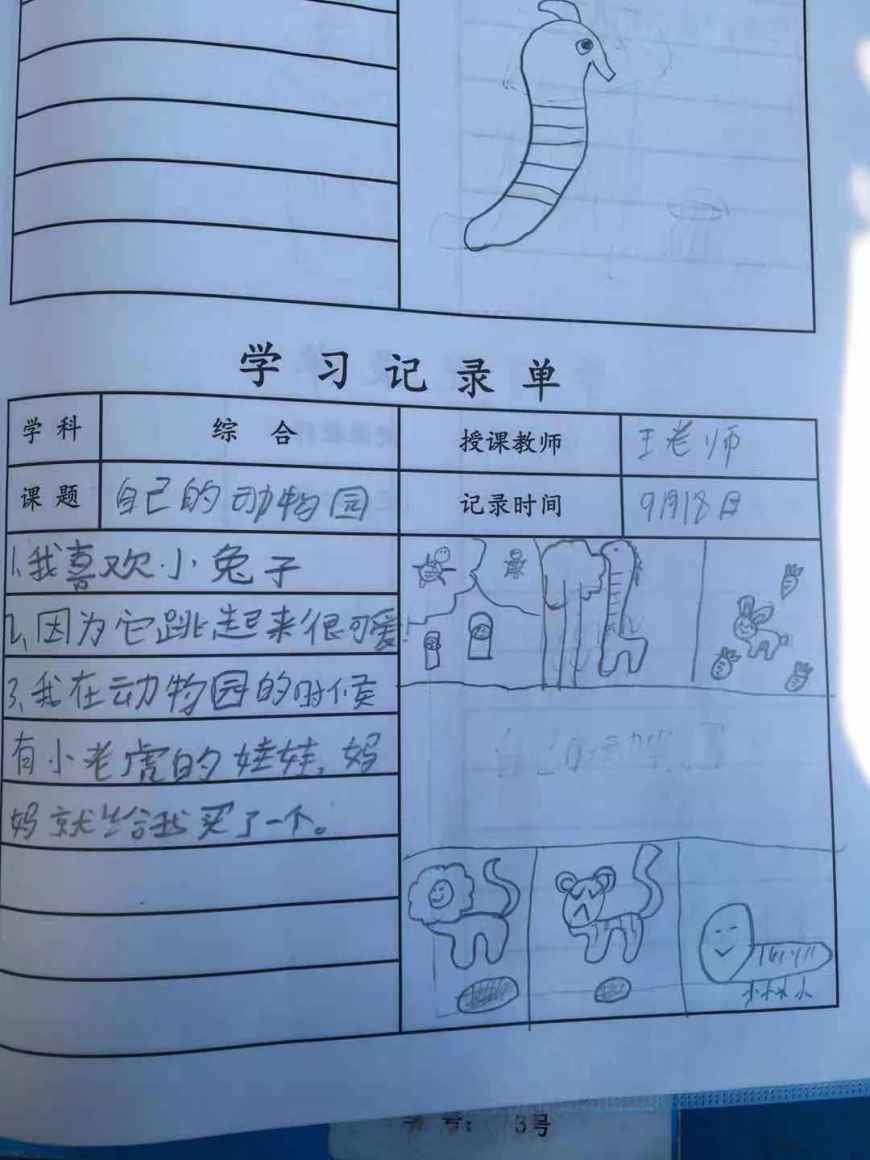 学习记录单
学科 综合 授课教师 王老师
课题 自己的动物园 记录时间 9月18日
1、我喜欢小兔子
2、因为它跳起来很可爱！
3、我在动物园的时候
有小老虎的娃娃，妈
妈就给我买了一个。
号： 3号